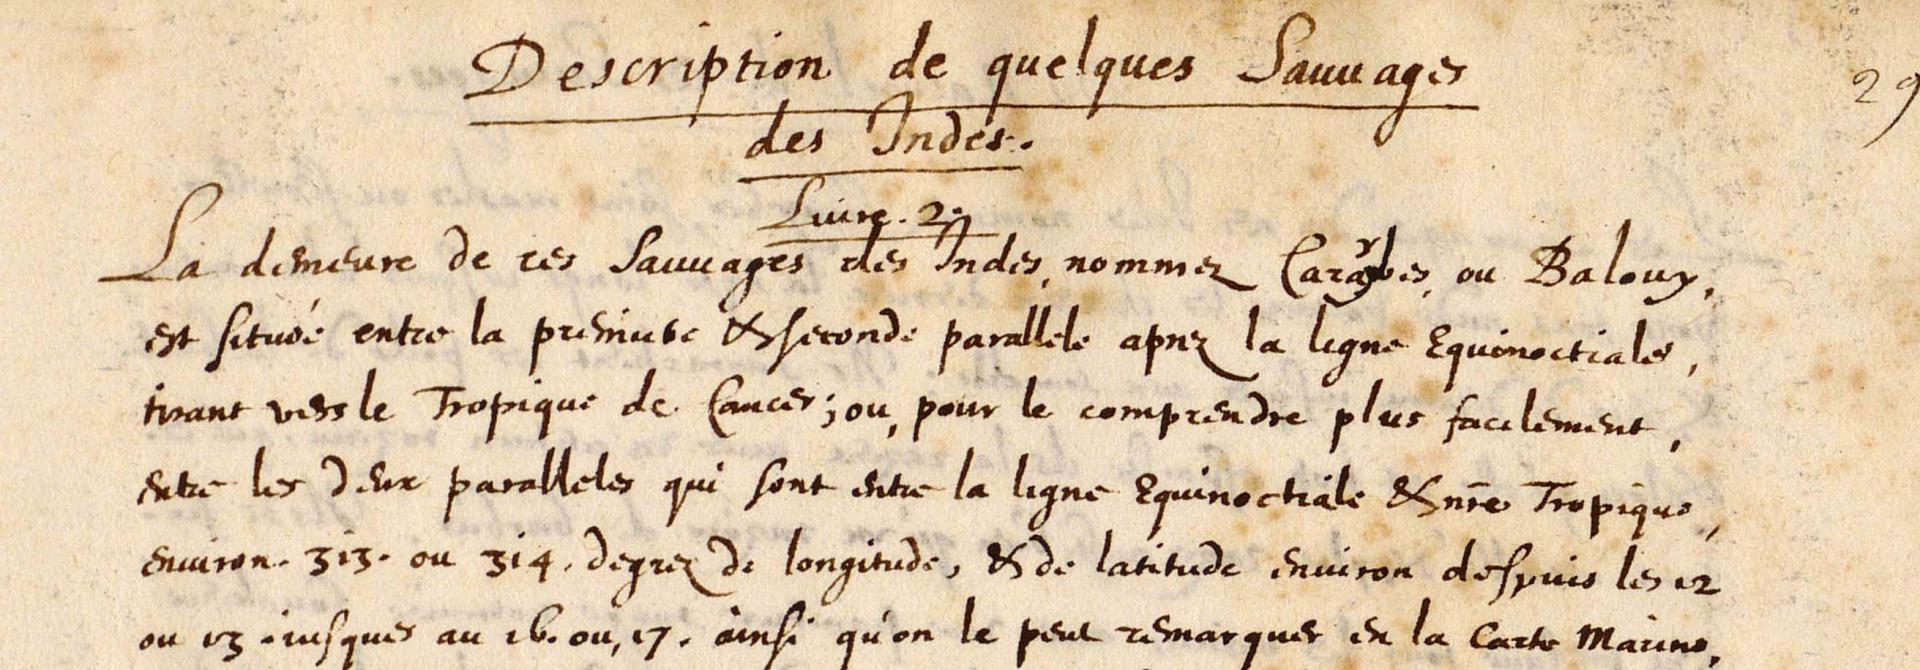 Description de quelques Sauuages
29
des Indes.
Liure. 2.
La demeure de ces Sauuages des Indes, nommez Caraybes, ou Balouy,
est située entre la premiere & seconde parallele apnez la ligne Equinoctiales,
tirant vers le Tropique de Cancer; ou, pour le comprendre plus facilement,
entre les deux paralleles qui sont entre la ligne Equinoctiale & nr̃e Tropique,
enuiron. 313. ou 314. degrez de longitude, & de latitude enuiron despuis les 12
ou 13. iusques au 16. ou, 17. ainsi qu'on le peut remarquer en la Carte Marine,